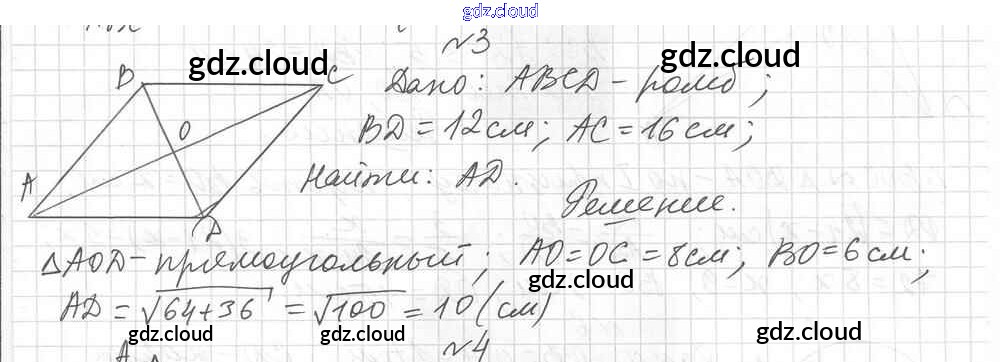 gdz.cloud
№3
gdz.cloud
gdz.cloud
B
C
Дано: ABCD - ромб;
O
BD = 12 см; AC = 16 см;
A
Найти: AD.
Решение.
D
ΔAOD - прямоугольный; AO = OC = 8 см; BO = 6 см;
gdz.cloud
AD = √64+36 = √100 = 10 (см)
gdz.cloud
gdz.cloud
A
№4